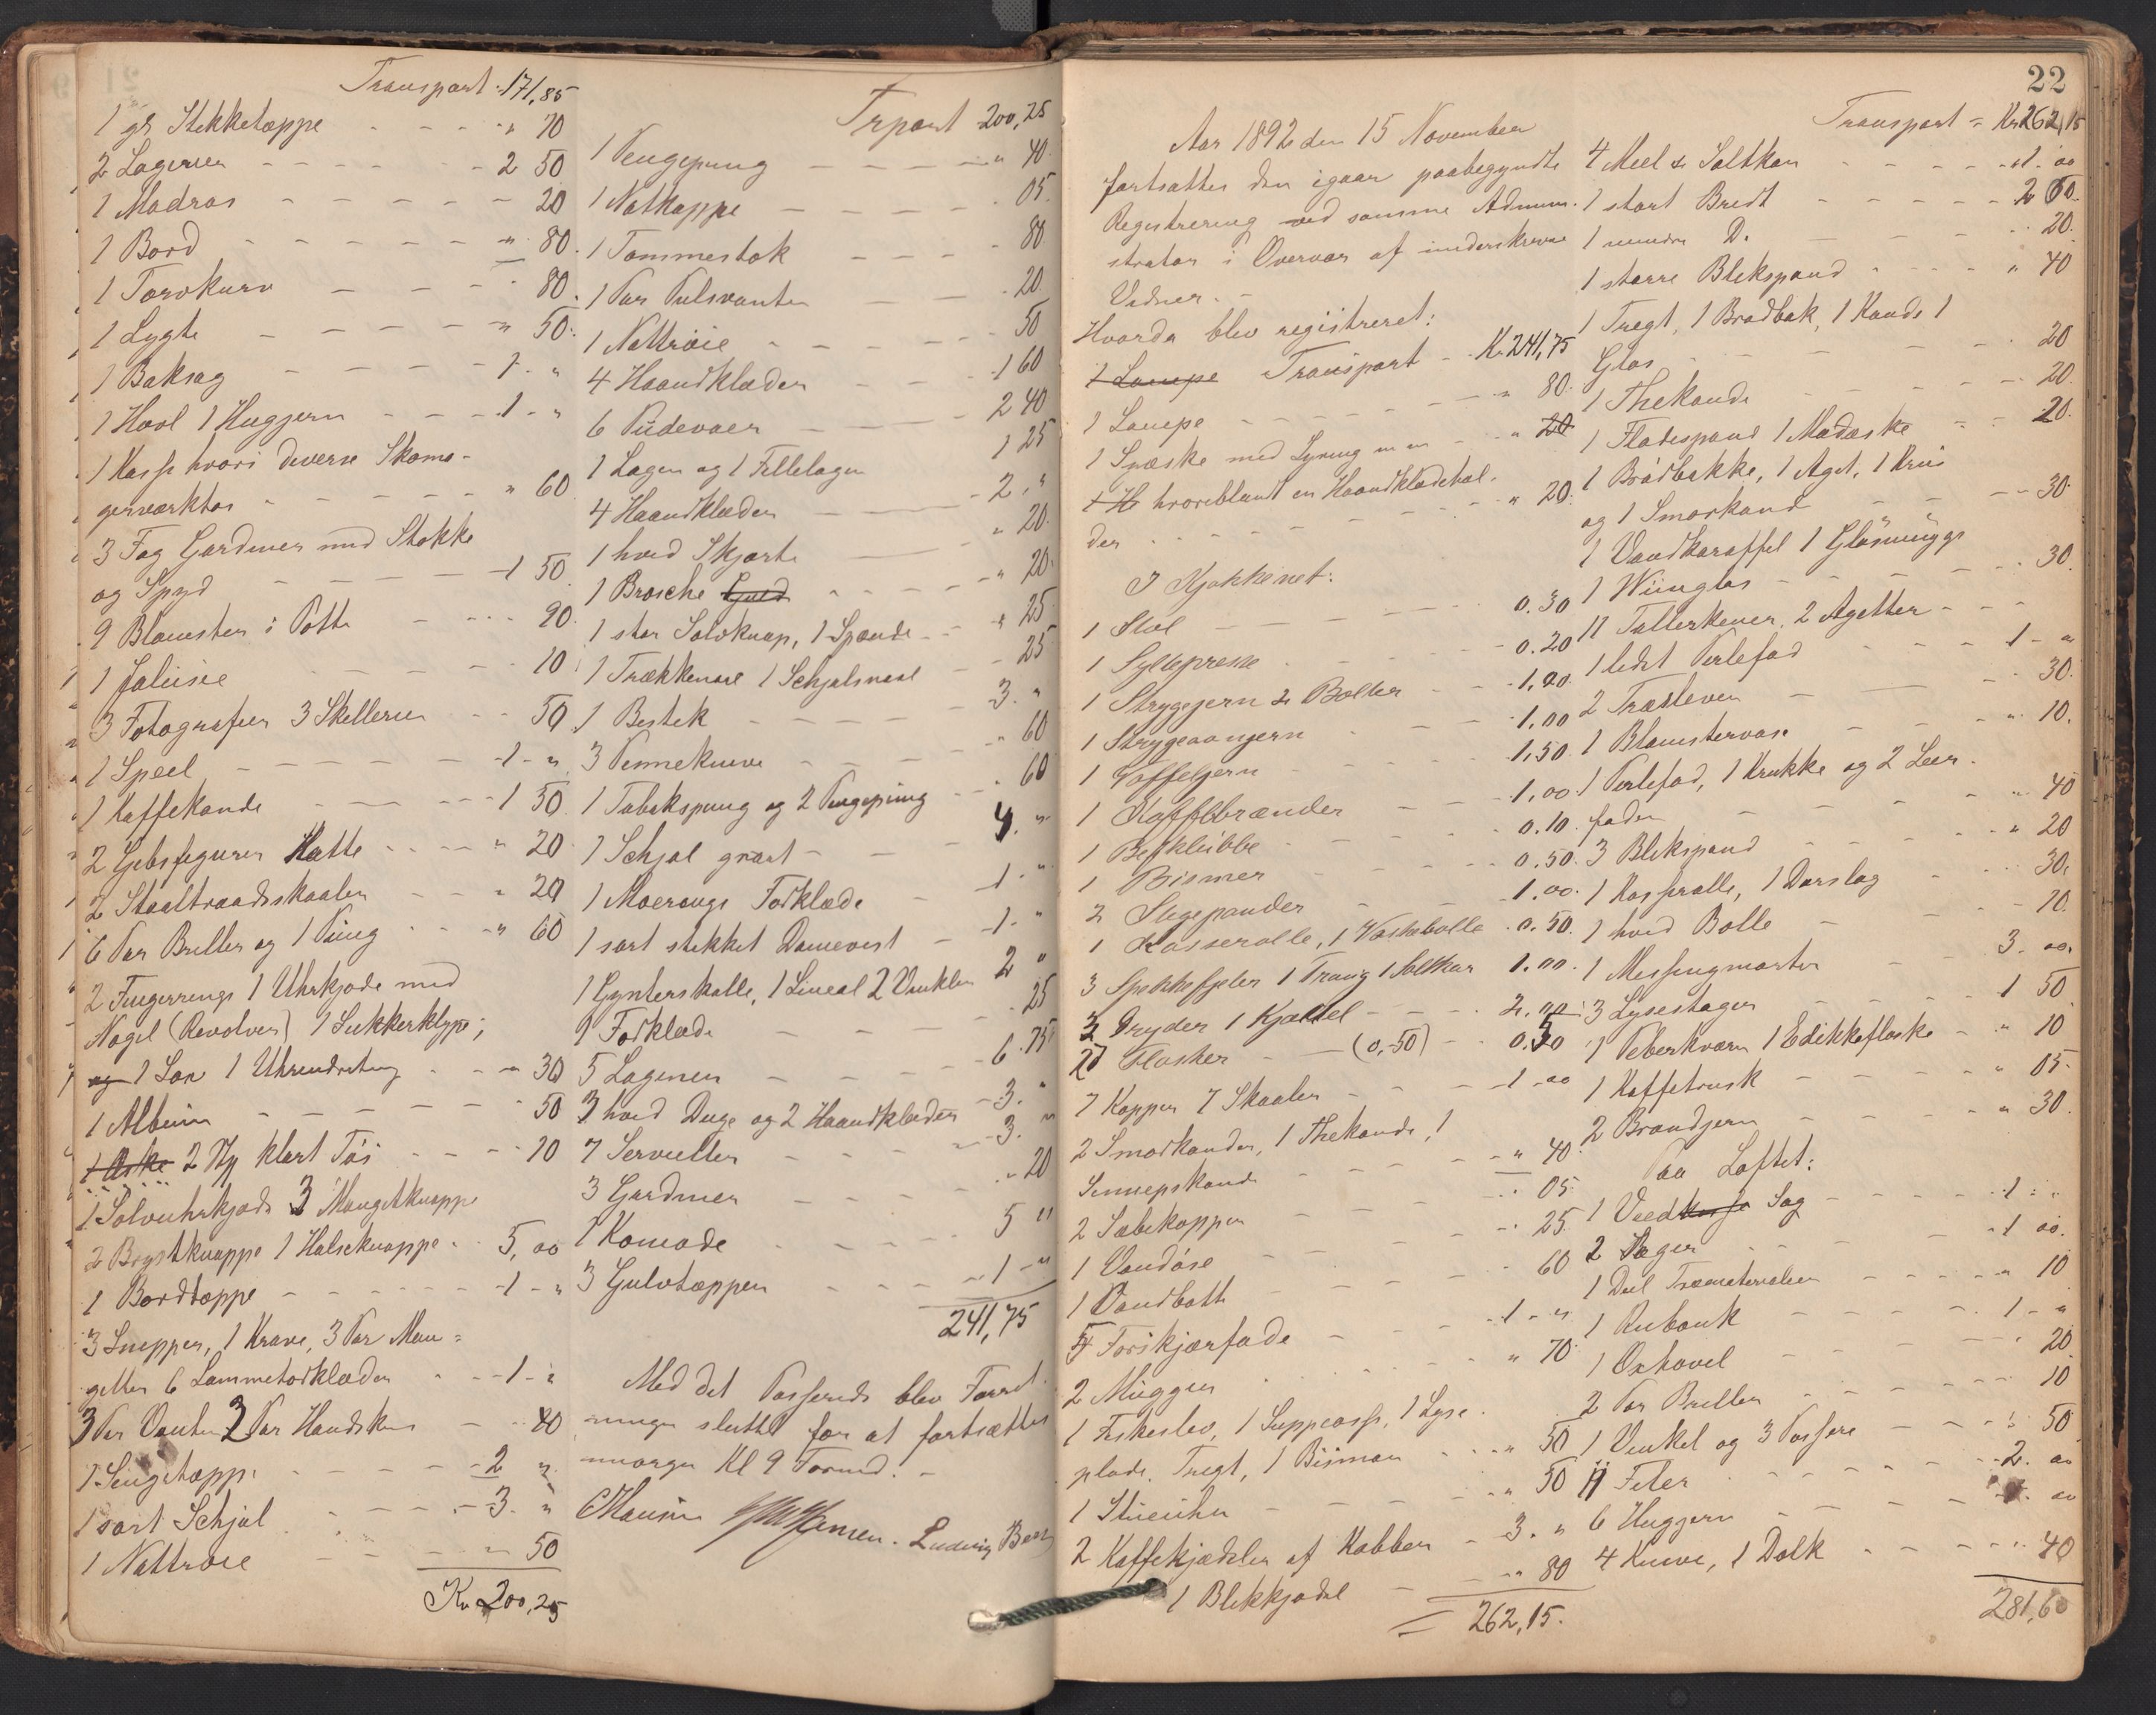 Transport: 171,85
1 gr Stikketæppe - - - " 70
2 Lagener - - - - - 2 50
1 Madras - - - - - 20
1 Bord - - - - - " 80.
1 Torvkurv - - - 80.
1 Lygte - - - - " 50.
1 Baksag - - - - 1 - "
1 Hovl 1 Hugjern - - - 1 - "
1 Kasse hvori diverse Skoma-
gerværktøi - - - - - " 60
3 Fag Gardiner med Stokke
og Spyd - - - - - 1 50
9 Blomster i Potte - - - 90.
1 Jalusie - - - 10
3 Fotografier 3 Skillerier - - 50
1 Speil - - - - - 1 - "
1 Kaffekande - - - - 1 50
2 Gibsfigurer Katte - - - " 20
2 Staaltraadsskaaler - - - 20
6 Par Briller og 1 Pung - - " 60
2 Fingerringe 1 Uhrkjæde med
Nøgel (Revolver) 1 Sukkerklype;
1 Sax 1 Uhrundretning - - - 30
1 Album - - - - - - 50
1 Æske 2 Np klart Tøi - - - 10
1 Sølvuhrkjæde 3 Mangetknappe
2 Brystknappe 1 Halseknappe - 5,00
1 Bordtæppe - - - - - 1 - "
3 Snipper, 1 Krave, 3 Par Man=
getter 6 Lommetørklæder - - 1 - "
3 Par Vanter 2 Par Handsker - - 40
1 Sengetæppe - - - - 2 "
1 sort Schjal - - - - 3. "
1 Nattrøie - - - - 50
Kr 200,25
Trpart 200,25
1 Pengepung - - - " 40.
1 Natkappe - - - - 05.
1 Tommestok - - - 80
1 Par Pulsvanter - - 20.
1 Nattrøie - - - - - 50
4 Haandklæder - - - 1 60
6 Pudevaer - - - 2 40
1 Lagen og 1 Fillelagen 1 25
4 Haandklæder - - - 2, "
1 hvid Skjorte - - " 20.
1 Brosche Guld - - - " 20.
1 stor Sølvknap, 1 Spænde - - " 25
1 Trækkenaal 1 Schjalsnaal - - 25
1 Bestik - - - - - 3. "
3 Penneknive - - - " 60
1 Tobakspung og 2 Pengepung - - 60
1 Schjal graat - - - 4. "
1 Moerongs Forklæde - 1. "
1 sort stikket Damevest - 1. "
1 Gynterskalle, 1 Lineal 2 Vinkler 2 "
9 Forklæde - - - 25
5 Lagener - - - - 6.75
3 hvid Duge og 2 Haandklæder - 3. "
7 Servietter - - - - 3. "
3 Gardiner - - - - " 20
1 Komode - - - - - 5 "
3 Gulvtæppen - - - - 1 - "
241,75
Med det Passerede blev Forret-
ningen sluttet for at fortsættes
imorgen Kl 9 Formd. -
CHansen Jensen. Ludvig Be
22
Aar 1892 den 15 November
fortsattes den igaar paabegyndte
Registrering ved samme Admini-
strator i Overvær af underskrevne
Vidner. -
Hvorda blev registreret:
1 Lampe Transport - Kr 241,75
1 Lampe - - - - - - " 80.
1 Syæske med Syning m m - - " 20
1 H hvoriblandt en Haandklædehol-
der - - - - - - - - " 20.
I Kjøkkenet:
1 Stol - - - - - 0.30
1 Syltepresse - - - - - 0.20
1 Strygejern & Bolter - - - 1,20.
1 Strygeovnjern - - - - 1.00
1 Gaffeljern - - - - - 1,50.
1 Kaffebrænder - - - - 1,00
1 Befklubbe - - - - - 0.10.
1 Bismer - - - - - 0.50.
2 Stegepander - - - - 1.00.
1 Kasserolle, 1 Vaskebolle - 0.50.
3 Spekkefjeler 1 Traug 1 Saltkar 1.00.
3 Gryder 1 Kjættel - - - 2.00
27 Flasker - - (0,-50) - 0.50
7 Kopper 7 Skaaler - - - 1 - 00
2 Smørkander, 1 Thekande, 1
Sennepskande - - - - - " 40.
2 Sæbekopper - - - - 05.
1 Vandøse - - - - - 25.
1 Vandbøtte - - - - - 60
5 Forskjærfade - - - 1 - "
2 Mugger - - - - - " 70.
1 Fiskeslev, 1 Suppeøse, 1 Lyse-
plade, Tregt, 1 Bismar - - " 50
1 Stueuhr - - - - - " 50
2 Kaffekjædeler af Kobber - 3. "
1 Blikkjædel - - - " 80
= 262,15.
Transport = Kr 262,15
4 Meel & Saltkar - - - - 1.00
1 stort Bredt - - - - - 2 50.
1 mindre D. - - - - 20.
1 større Blikspand - - - - " 40
1 Tregt, 1 Brødbak, 1 Kande 1
Glas - - - - - - - 20
1 Thekande - - - - - 20.
1 Flødespand 1 Madæske - - 20.
1 Brødbakke, 1 Aget, 1 Krus
og 1 Smørkand - - - - 30.
1 Vandkaraffel 1 Glasmugge
1 Wiinglas - - - - - 30.
11 Tallerkener, 2 Agetter - - -
1 lidet Perlefad - - - 1 - "
2 Træsleven - - - - 30.
1 Blomstervase - - - " 10.
1 Perlefad, 1 Krukke og 2 Leer-
fader - - - - - - " 40
3 Blikspand - - - - - " 20
1 Kasserolle, 1 Dørslag - - 30.
1 hvid Bolle - - - - - 10.
1 Messingmorter - - - 3. 00.
3 Lysestager - - - - 1 50
1 Peberkværn 1 Edikkeflaske - " 10
1 Kaffetrusk - - - - " 05.
2 Brandjern - - - - - " 30.
Paa Loftet:
1 Vedkasse Sag - - - - 1 : "
2 Sager - - - - - 1 00.
1 Deel Træmaterialier - - - " 10
1 Rubank - - - - - 1 - "
1 Oxhøvel - - - - - 20
2 Par Briller - - - - - 10
1 Vinkel og 3 Passere - - " 50
11 Filer - - - - - - 2. 00
6 Hugjern - - - - - 00
4 Knive, 1 Dolk - - - - " 40
281,60